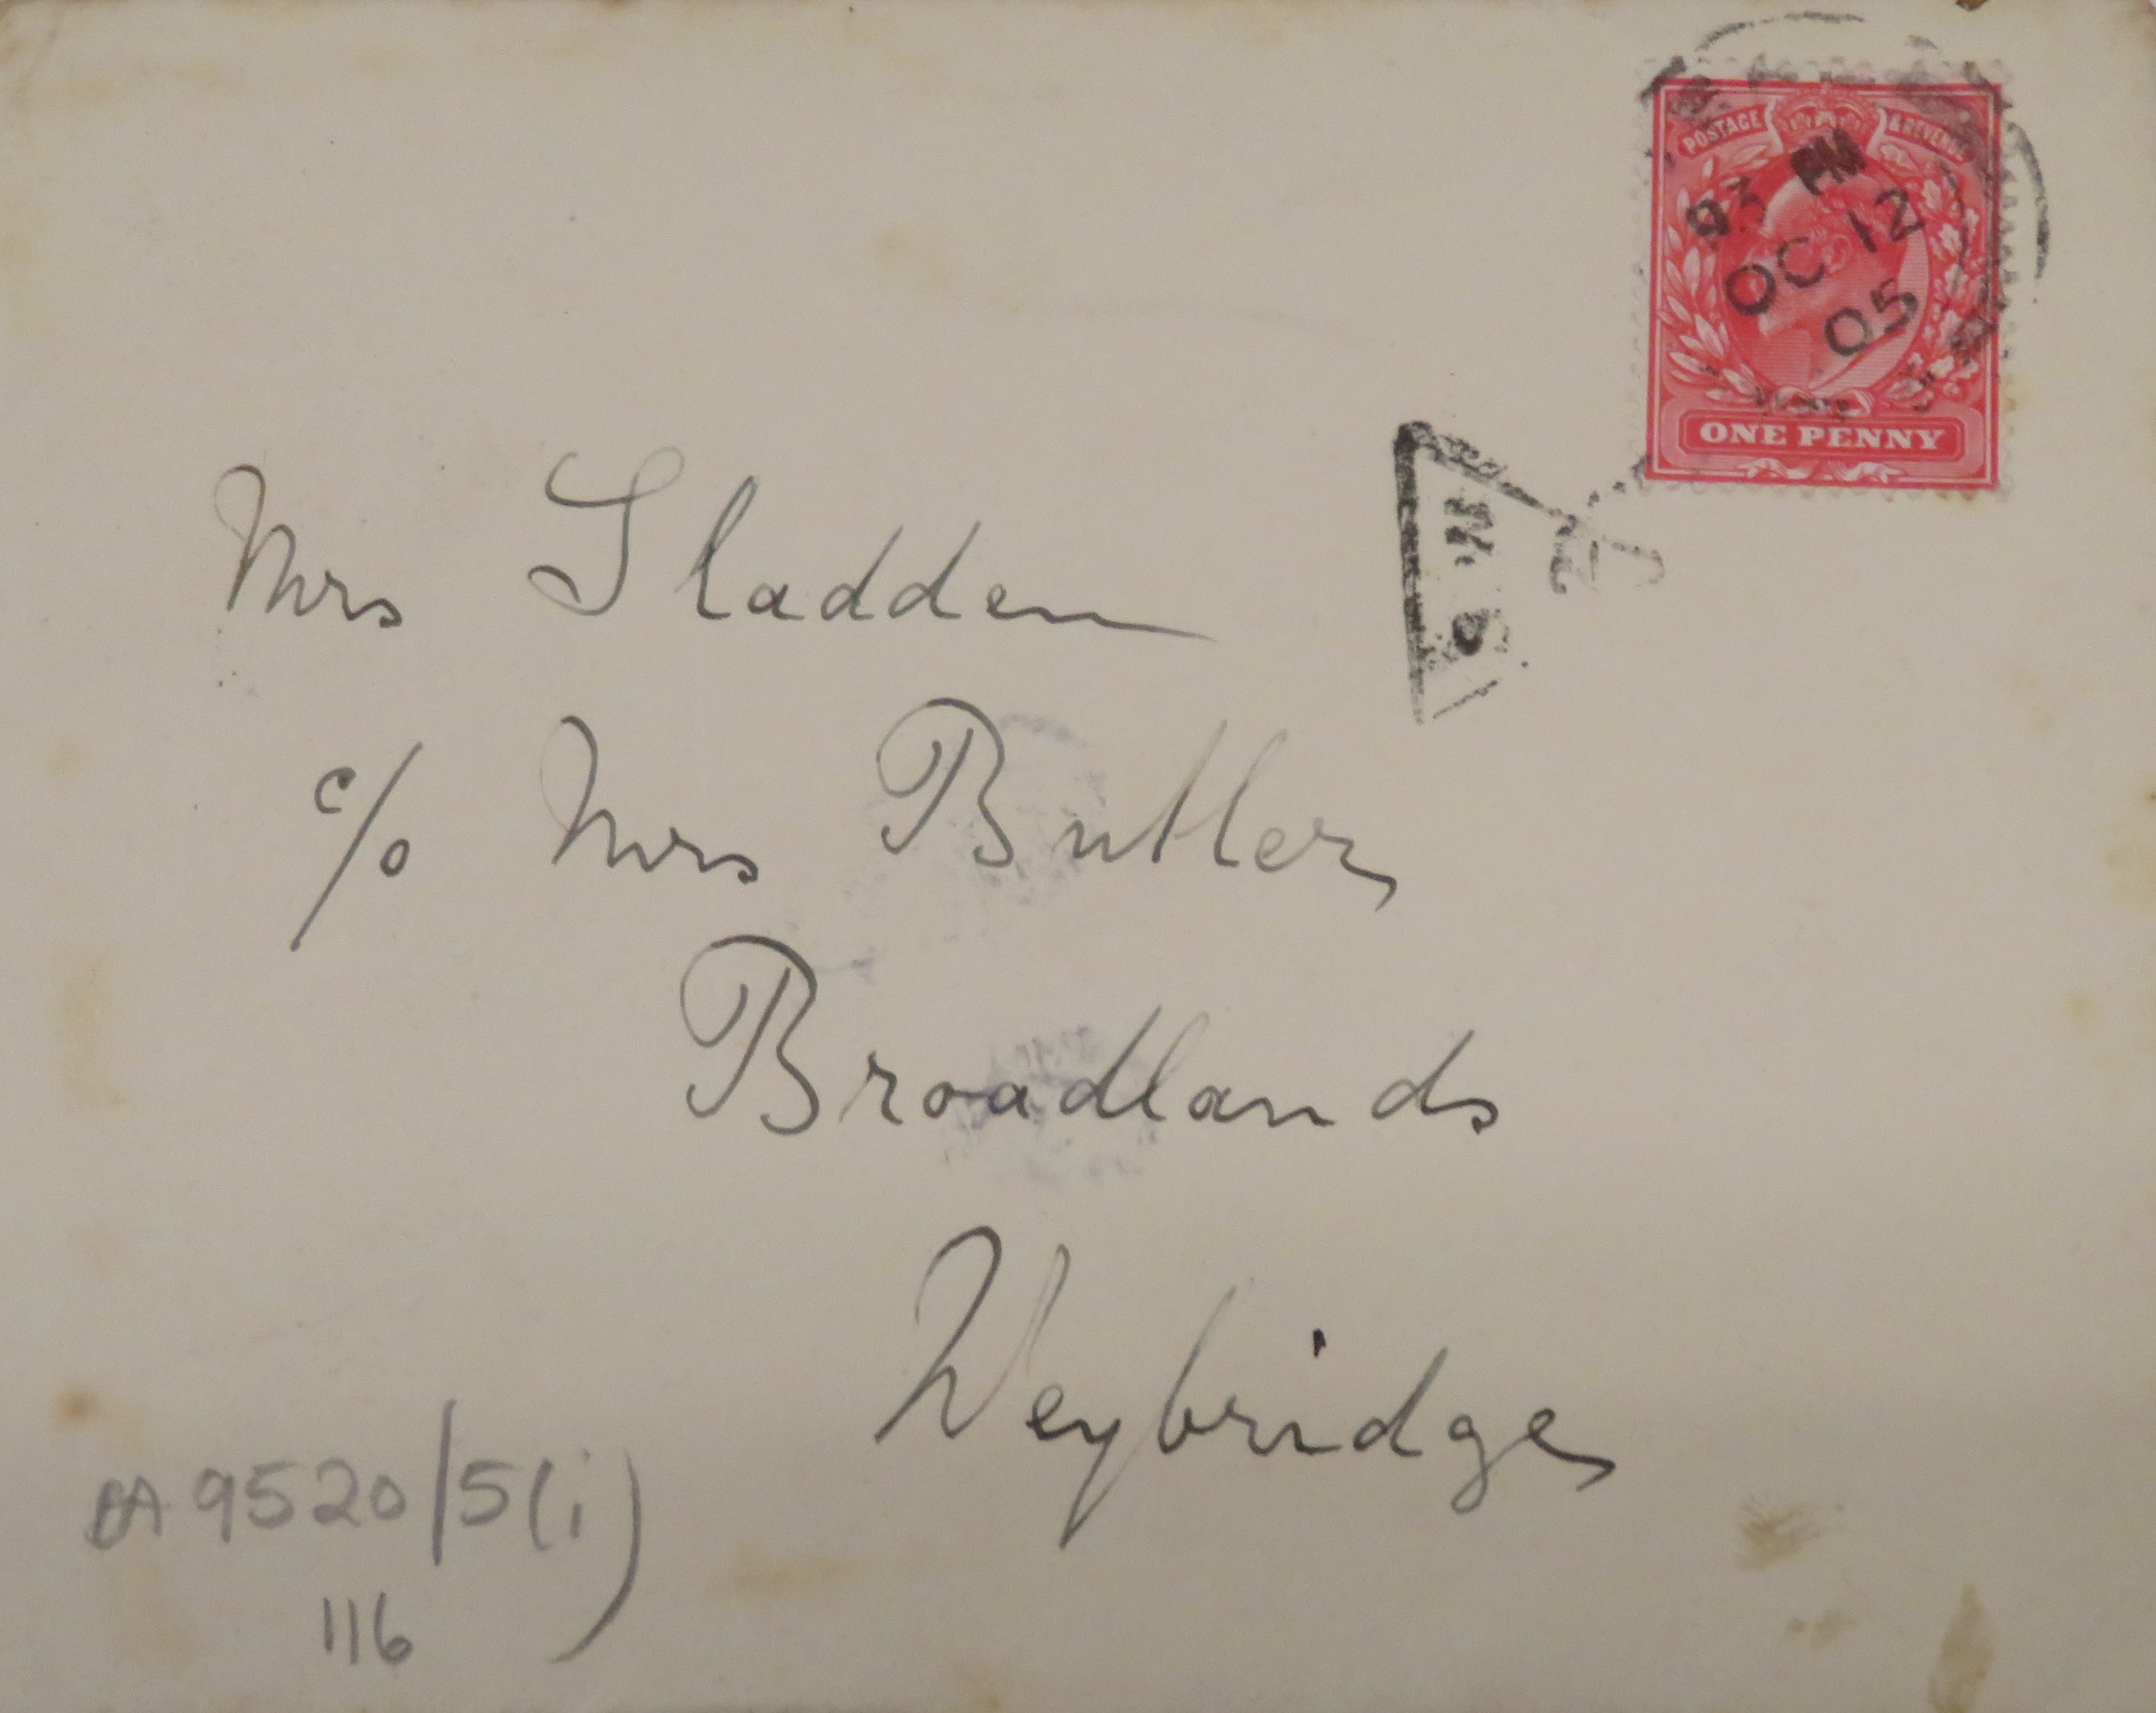 POSTAGE & REVENUE
PM
OC 12
05
ONE PENNY
Mrs Sladden
c/o Mrs Butler
Broadlands
Weybridge
BA 9520/5(i)
116